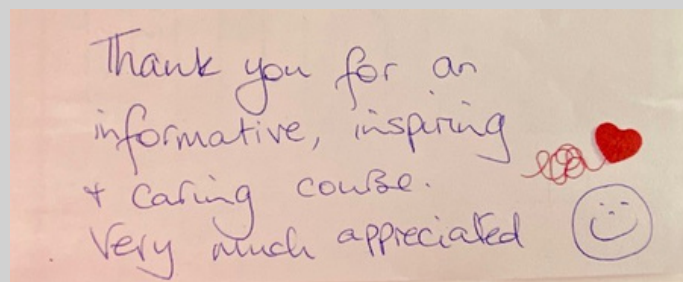 Thank you for an
informative, inspiring
+ caring course.
Very much appreciated